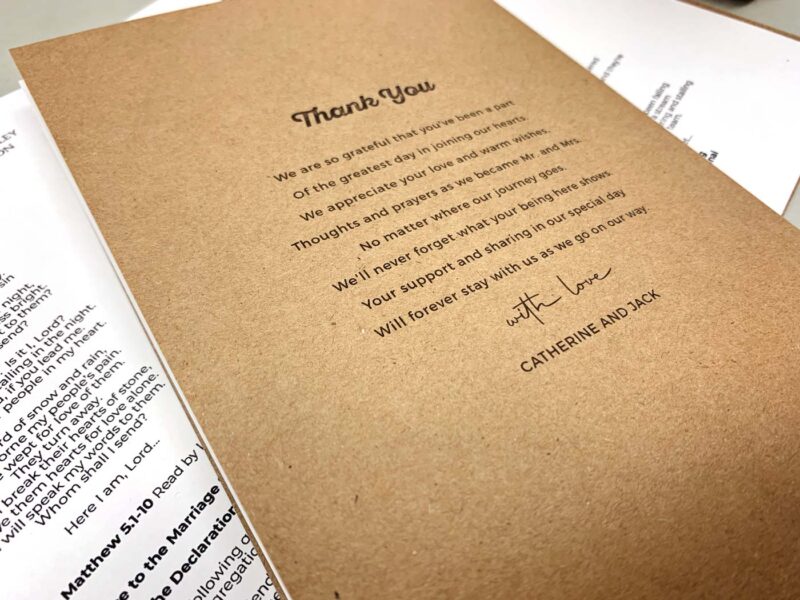 Thank You
We are so grateful that you've been a part
Of the greatest day in joining our hearts.
We appreciate your love and warm wishes,
Thoughts and prayers as we became Mr. and Mrs.
No matter where our journey goes,
We'll never forget what your being here shows.
Your support and sharing in our special day
Will forever stay with us as we go on our way.
with love
CATHERINE AND JACK
LEY
ON
sin
night.
ss bright.
t to them?
send?
Is it I, Lord?
alling in the night.
d, if you lead me.
people in my heart.
rd of snow and rain,
orne my people's pain.
wept for love of them.
They turn away.
break their hearts of stone,
ve them hearts for love alone.
will speak my words to them.
Whom shall I send?
Here I am, Lord...
Matthew 5.1-10 Read by
e to the Marriage
he Declaration
following
gregatio
falling
and stalling